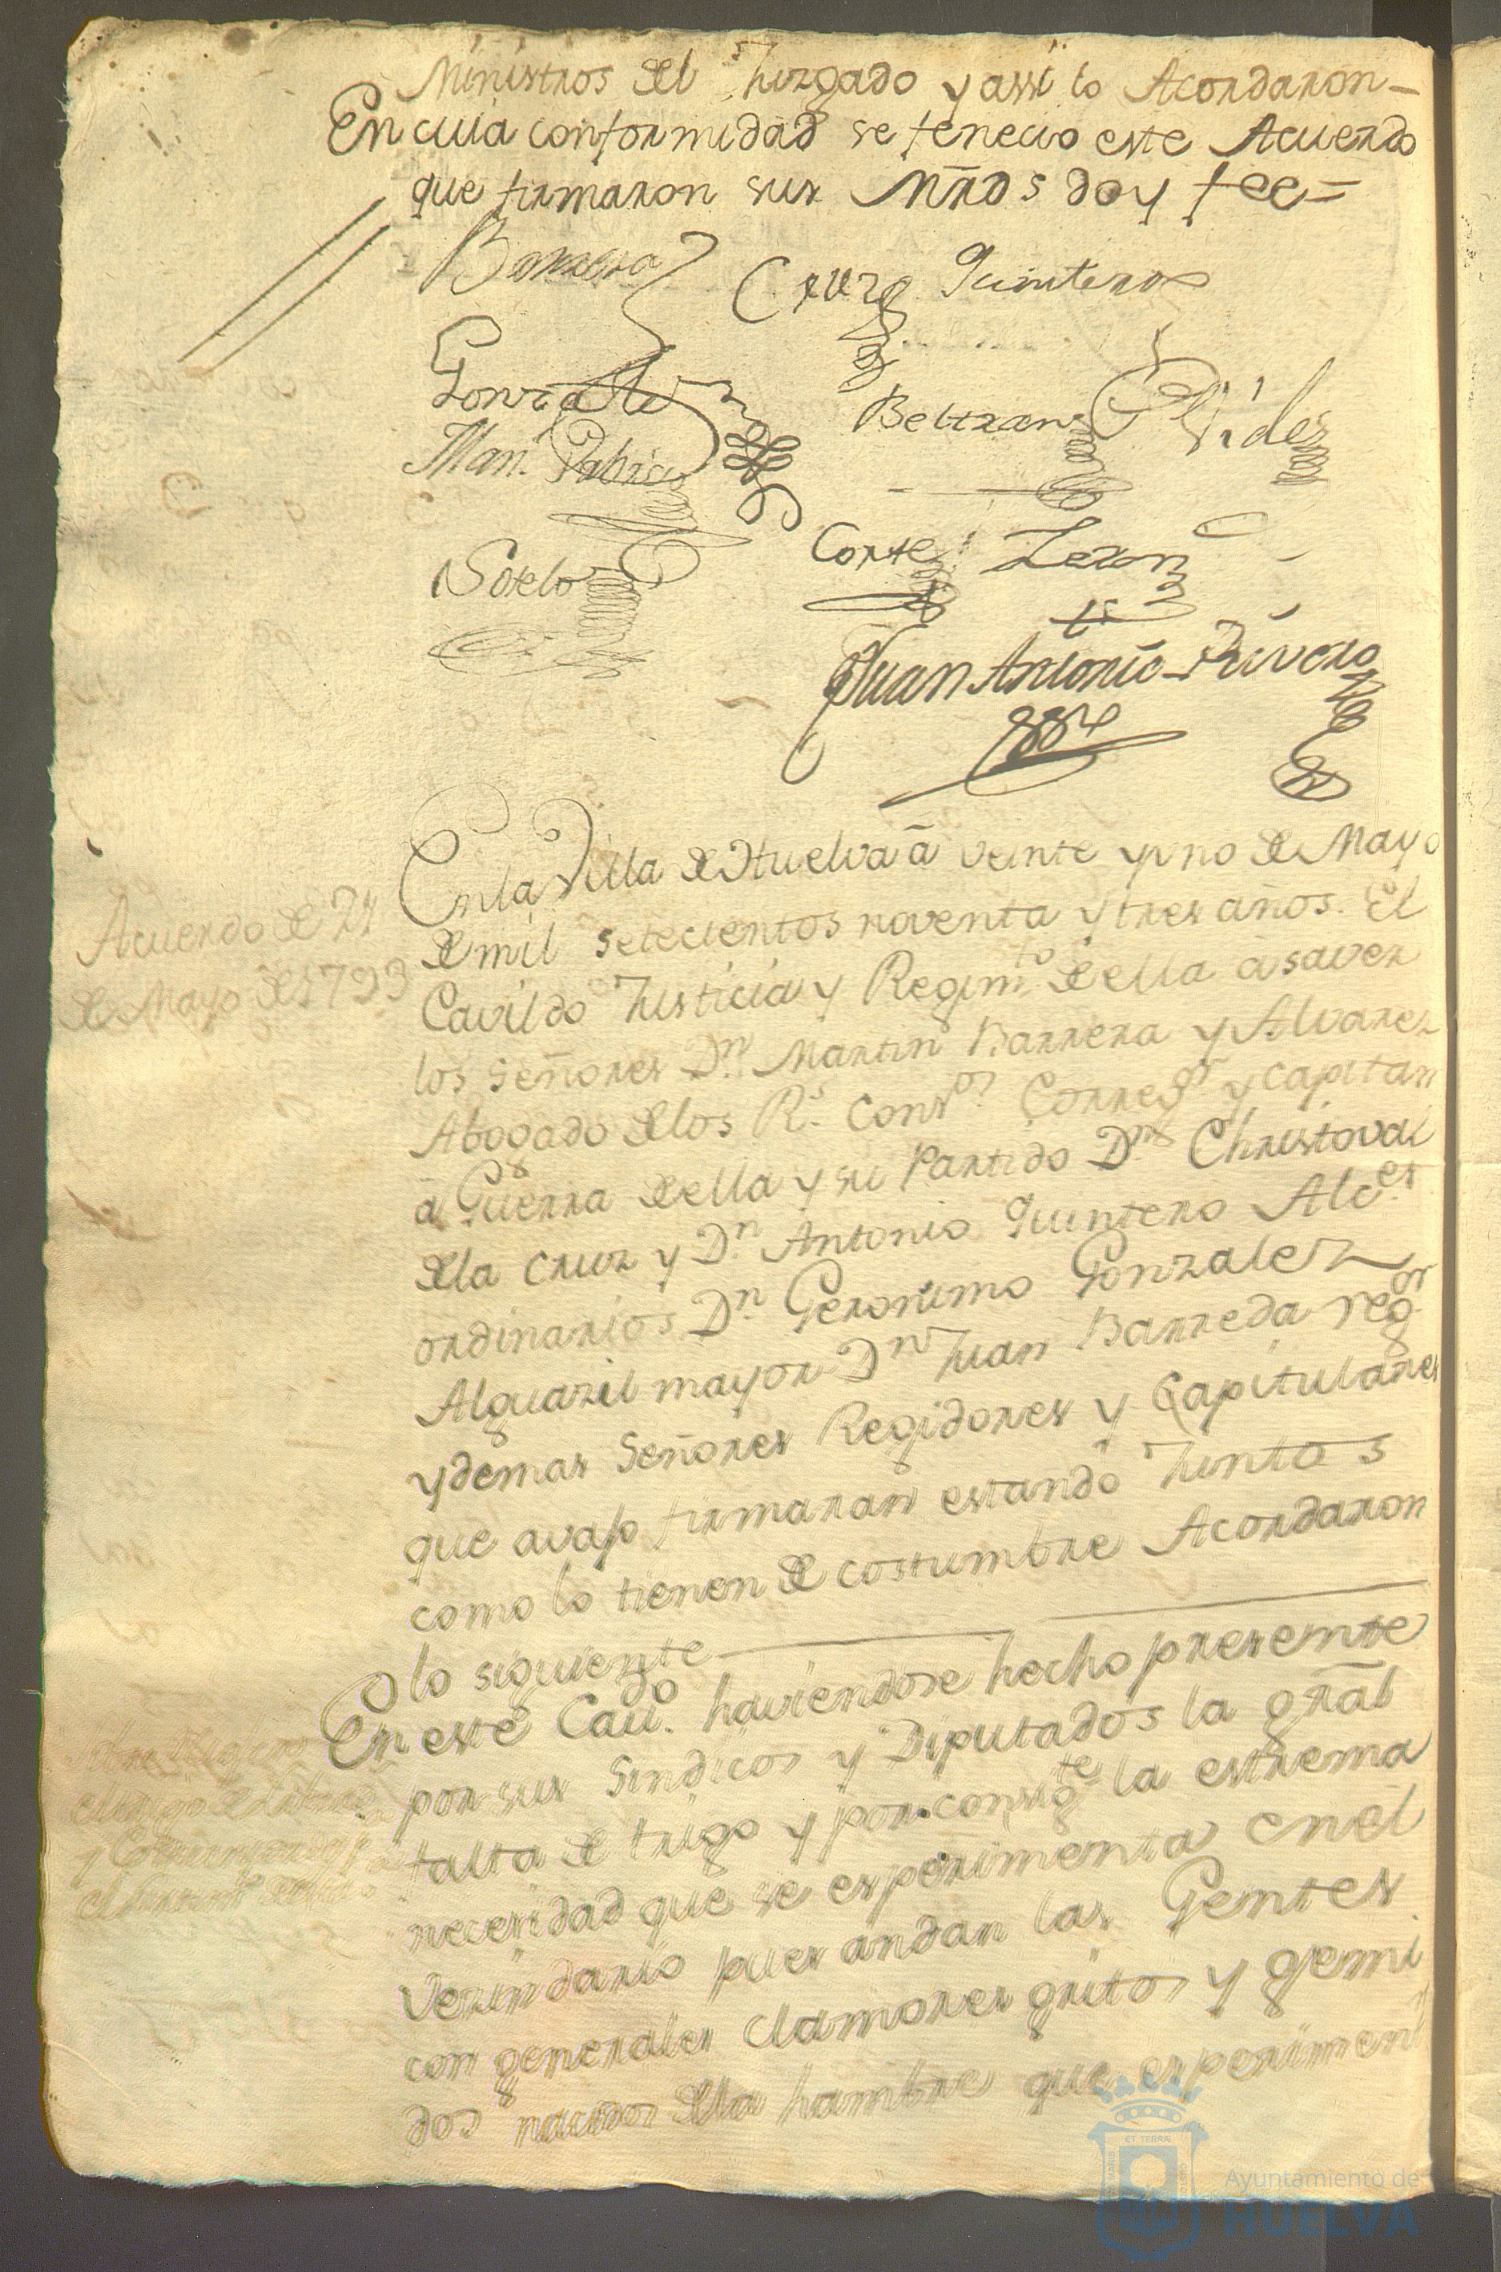 Ministros del Juzgado y assi lo Acordaron—
En cuia conformidad se fenecio este Acuerdo
que firmaron sus Mrds doy fee=
Barrera
Cruz Quintero
Gonzalez
Beltran
Man.
Cortes
Sotelo
Juan Antonio Rivero
En la Villa de Huelva â veinte y uno de Mayo
Acuerdo de 21
de mil setecientos noventa y tres años. El
de Mayo de 1793
Cavildo Justicia y Regim.to de ella â saver
los Señores Dn. Martin Barrera y Alvarez
Abogado de los R.s Cons.os Correg.or y Capitan
â Guerra de ella y su Partido Dn. Christoval
de la Cruz y Dn. Antonio Quintero Alc.es
ordinarios Dn. Geronimo Gonzalez
Alguazil mayor Dn. Juan Barreda reg.or
y demas Señores Regidores y Capitulares
que avajo firmaran estando Juntos
como lo tienen de costumbre Acordaron
lo siguiente
En este Cav.do haviendose hecho presente
por sus Sindicos y Diputados la gral
falta de trigo y por consig.te la estrema
necesidad que se esperimenta en el
Vezindario pues andan las Gentes
con generales clamores gritos y gemi
dos nacidos de la hambre que esperiment
Ayuntamiento de
HUELVA